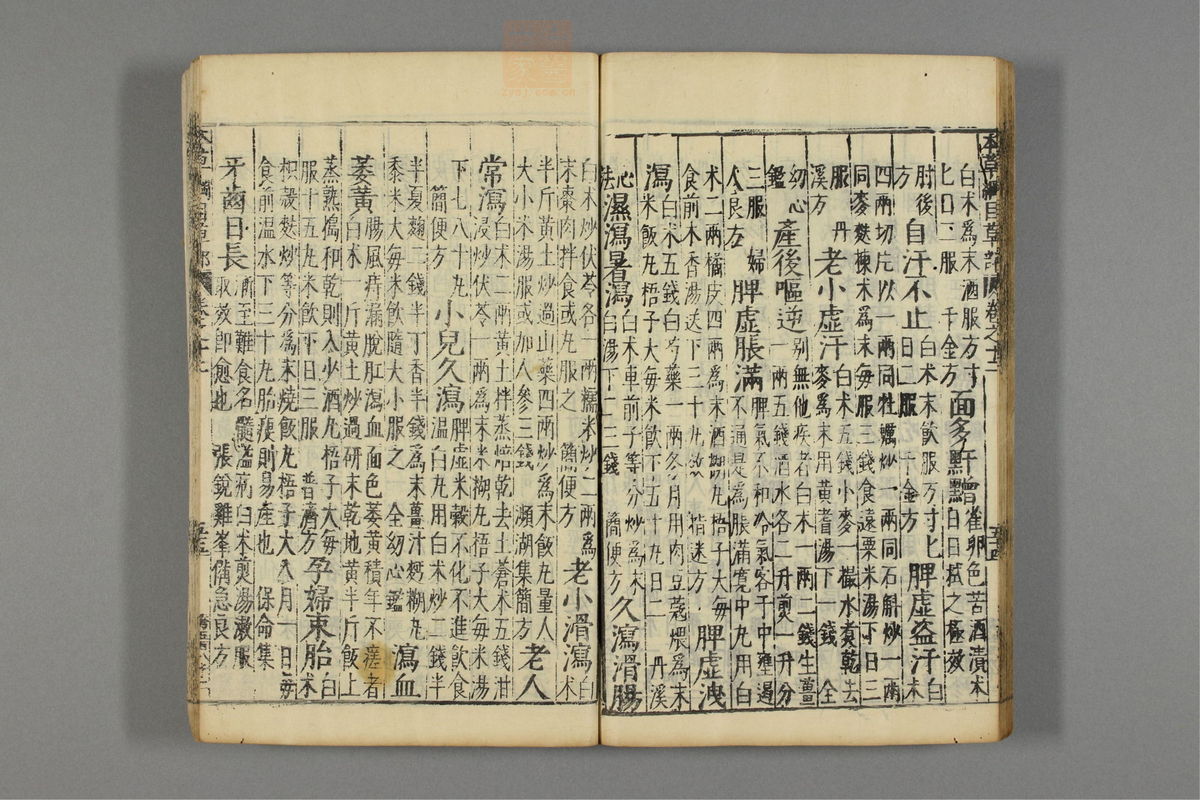 本草綱目草部 卷之十二 五十四
白术為末酒服方寸
匕日二服 千金方
面多䵟䵳雀卵色苦酒漬术
日日拭之極效
肘後方
自汗不止
白术末飲服方寸匕
日二服 千金方
脾虛盜汗
白术
四兩切片以一兩同牡蠣炒一兩同石斛炒一兩
同麥麩揀术為末每服三錢食遠粟米湯下日三
服 丹溪方
老小虛汗
白术五錢小麥一撮水煮乾去
麥為末用黃耆湯下一錢 全
幼心鑑
產後嘔逆
别無他疾者白术一兩二錢生薑
一兩五錢酒水各二升煎一升分
三服 婦人良方
脾虛脹滿
脾氣不和冷氣客于中壅遏
不通是為脹滿寬中丸用白
术二兩橘皮四兩為末酒糊丸梧子大每
食前木香湯送下三十丸效 指迷方
脾虛洩
瀉
白术五錢白芍藥一兩冬月用肉豆蔻煨為末
米飯丸梧子大每米飲下五十丸日二 丹溪
心法
濕瀉暑瀉
白术車前子等分炒為末
白湯下二三錢 簡便方
久瀉滑腸
白术炒伏苓各一兩糯米炒二兩為
末棗肉拌食或丸服之 簡便方
老小滑瀉
白术
半斤黄土炒過山藥四兩炒為末飲丸量人
大小米湯服或加人參三錢 瀕湖集簡方
老人
常瀉
白术二兩黄土拌蒸焙乾去土蒼术五錢泔
浸炒伏苓一兩為末米糊丸梧子大每米湯
下七八十丸 簡便方
小兒久瀉
脾虛米穀不化不進飲食
温白丸用白术炒二錢半
半夏麴二錢半丁香半錢為末薑汁麪糊丸
黍米大每米飲隨大小服之 全幼心鑑
瀉血
萎黄
腸風痔漏脫肛瀉血面色萎黄積年不瘥者
白术一斤黄土炒過研末乾地黄半斤飯上
蒸熟搗和乾則入少酒丸梧子大每
服十五丸米飲下日三服 普濟方
孕婦束胎
白术
枳殼麩炒等分為末燒飯丸梧子大入月一日每
食前温水下三十丸胎瘦則易產也 保命集
牙齒日長
漸至難食名髓溢病白术煎湯漱服
取效即愈也 張銳雞峯備急良方